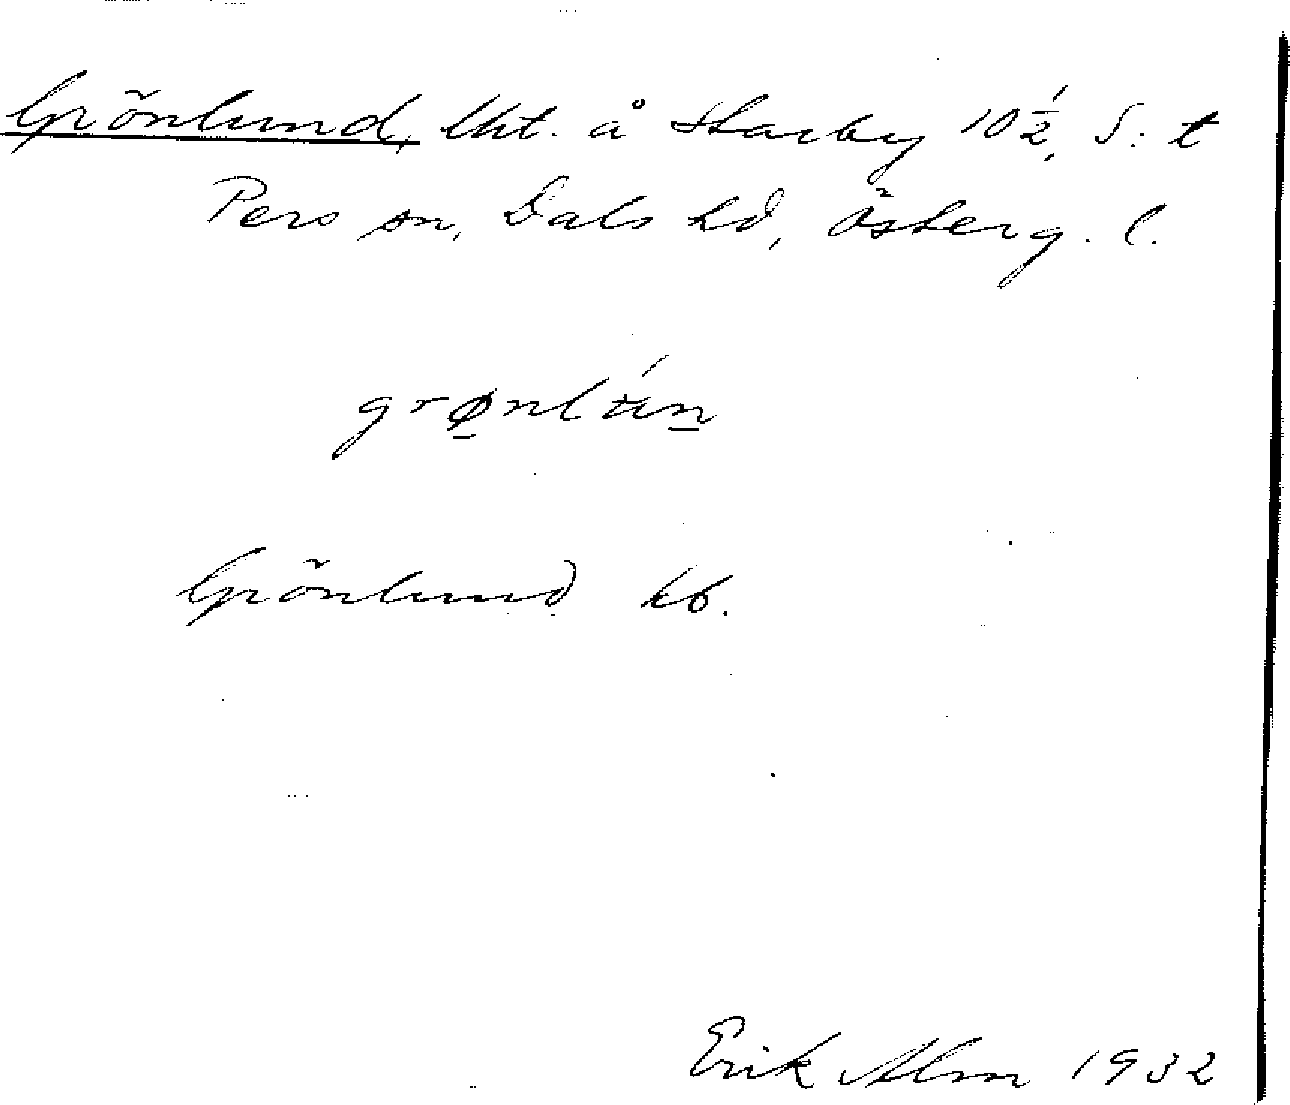 Grönlund, lht. å Starby 10 1/2, S:t
Pers sn, Dals hd, Österg. l.
grø̠nlún̠
Grönlund kb.
Erik Alm 1932